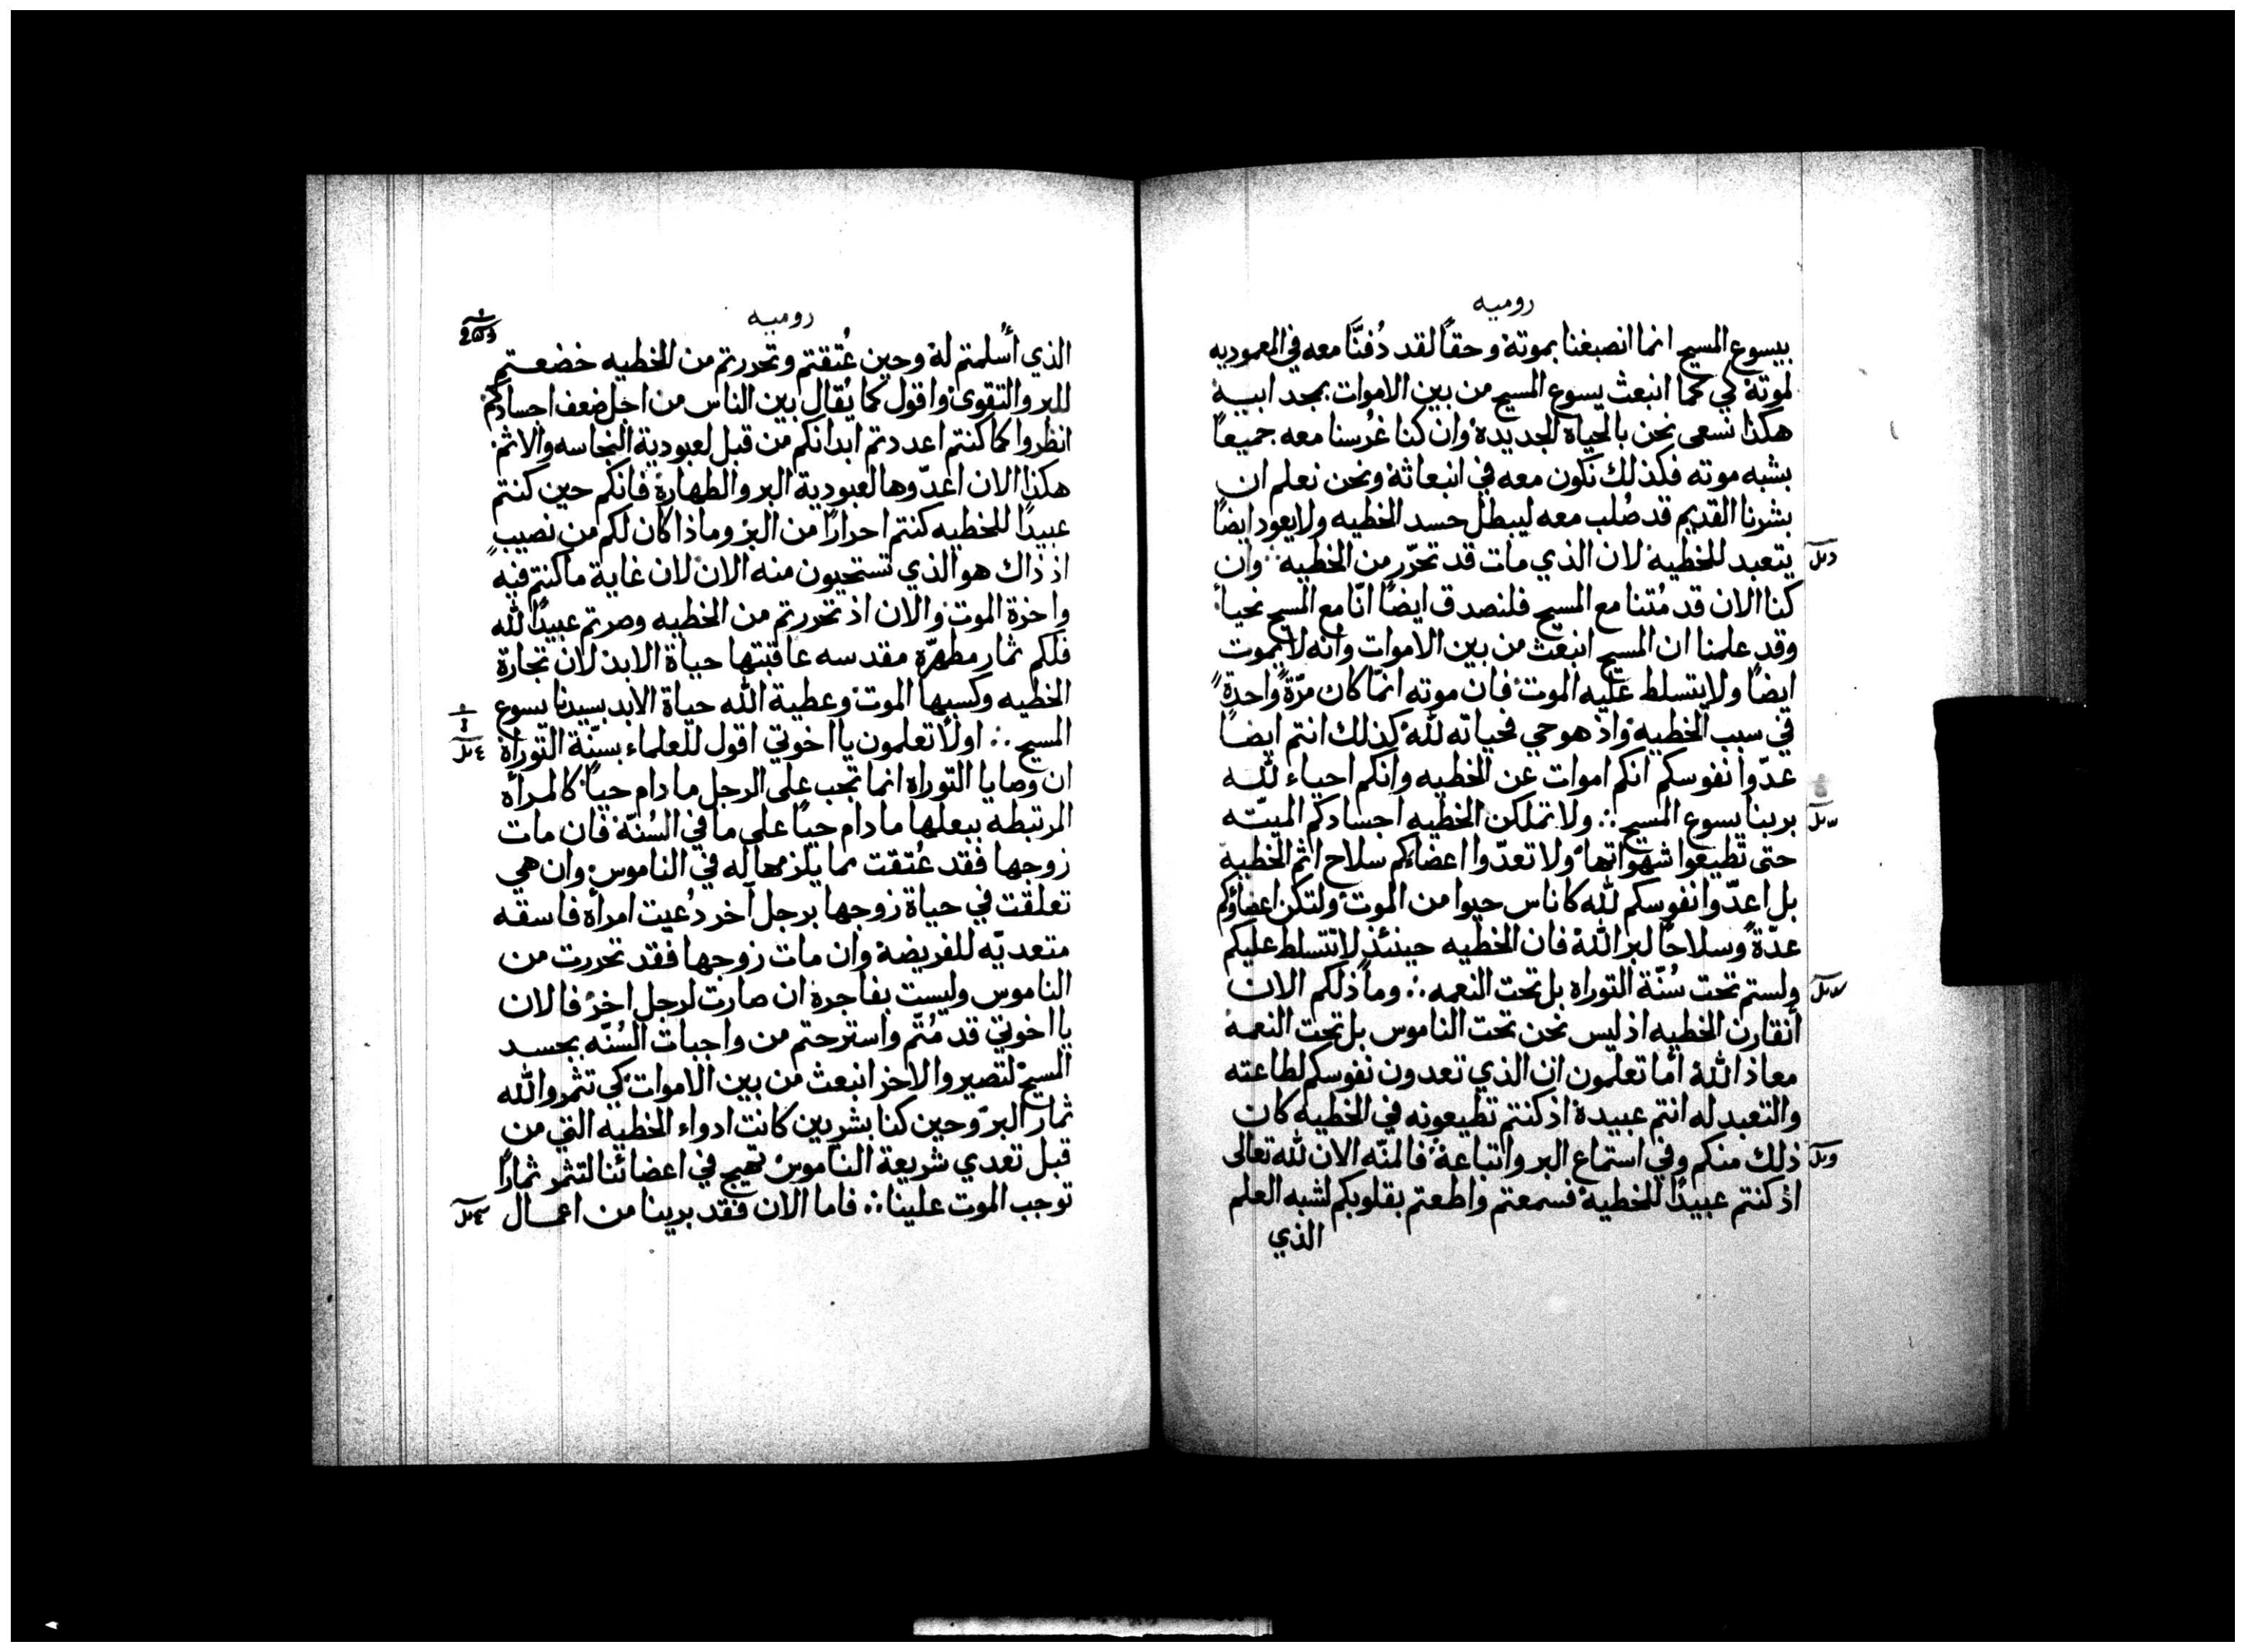 روميه
بيسوع المسيح انما انصبغنا بموته وحقاً لقد دُفنَّا معه في العموديه
لموته كي كما انبعث يسوع المسيح من بين الاموات بمجد ابيه
هكذا نسعى نحن بالحياه الجديده وان كنا غُرسنا معه جميعاً
بشبه موته فكذلك نكون معه في انبعاثه ونحن نعلم ان
بشرنا القديم قد صُلب معه ليبطل جسد الخطيه ولا يعود ايضاً
يتعبد للخطيه لان الذي مات قد تحرّر من الخطيه وان
كنا الان قد مُتنا مع المسيح فلنصدق ايضاً انّا مع المسيح نحيا
وقد علمنا ان المسيح انبعث من بين الاموات وانه لا يموت
ايضاً ولا يتسلط عليه الموت فان موته انمّا كان مرّةً واحدةً
في سبب الخطيه واذ هو حي فحياته لله كذلك انتم ايضاً
عدّوا نفوسكم انكم اموات عن الخطيه وانكم احياء لله
بربنا يسوع المسيح ∴ ولا تملكن الخطيه اجسادكم الميّته
حتى تطيعوا شهواتها ولا تعدّوا اعضاكم سلاح اثم الخطيه
بل اعدّوا نفوسكم لله كاناس حيوا من الموت ولتكن اعضاؤكم
عدّةً وسلاحاً لبر الله فان الخطيه حينئذٍ لا تتسلط عليكم
ولستم تحت سُنّة التوراه بل تحت النعمه ∴ وما ذلكم الان
أنقارن الخطيه اذ ليس نحن تحت الناموس بل تحت النعمه
معاذ الله أما تعلمون ان الذي تعدون نفوسكم لطاعته
والتعبد له انتم عبيده اذ كنتم تطيعونه في الخطيه كان
ذلك منكم وفي استماع البر واتباعه فالمنّه الان لله تعالى
اذ كنتم عبيداً للخطيه فسمعتم واطعتم بقلوبكم لشبه العلم
الذي
روميه
الذي أُسلمتم له وحين عُتقتم وتحررتم من الخطيه خضعتم
للبر والتقوى واقول كما يُقال بين الناس من اجل ضعف اجسادكم
انظروا كما كنتم اعددتم ابدانكم من قبل لعبودية النجاسه والاثم
هكذا الان اعدّوها لعبودية البر والطهارة فانكم حين كنتم
عبيداً للخطيه كنتم احراراً من البر وماذا كان لكم من نصيبٍ
اذ ذاك هو الذي تستحيون منه الان لان غاية ما كنتم فيه
واخرة الموت والان اذ تحررتم من الخطيه وصرتم عبيداً لله
فلكم ثمار مطهرّه مقدسه عاقبتها حياة الابد لان تجارة
الخطيه وكسبها الموت وعطية الله حياة الابد بسيدنا يسوع
المسيح ∴ اولا تعلمون يا اخوتي اقول للعلماء بسنّة التوراة
ان وصايا التوراه انما تجب على الرجل ما دام حياً كالمرأه
المرتبطه ببعلها ما دام حياً على ما في السُنّة فان مات
زوجها فقد عُتقت مما يلزمها له في الناموس وان هي
تعلقت في حياة زوجها برجل آخر دُعيت امرأه فاسقه
متعديّه للفريضه وان مات زوجها فقد تحررت من
الناموس وليست بفاجره ان صارت لرجل اخر فالان
يا اخوتي قد مُتّم واسترحتم من واجبات السُنّه بجسد
المسيح لتصيروا لاخر انبعث من بين الاموات كي تثمروا لله
ثمار البرّ وحين كنا بشريين كانت ادواء الخطيه التي من
قبل تعدي شريعة الناموس تهيج في اعضائنا لتثمر ثماراً
توجب الموت علينا ∴ فاما الان فقد برينا من اعمال